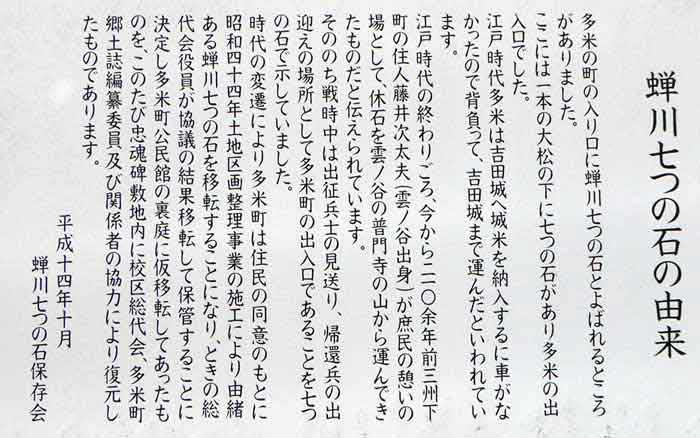 蝉川七つの石の由来
多米の町の入り口に蝉川七つの石とよばれるところ
がありました。
ここには一本の大松の下に七つの石があり多米の出
入口でした。
江戸時代多米は吉田城へ城米を納入するに車がな
かったので背負って、吉田城まで運んだといわれてい
ます。
江戸時代の終わりごろ、今から二一〇余年前三州下
町の住人藤井次太夫(雲ノ谷出身)が庶民の憩いの
場として、休石を雲ノ谷の普門寺の山から運んでき
たものだと伝えられています。
そののち戦時中は出征兵士の見送り、帰還兵の出
迎えの場所として多米町の出入口であることを七つ
の石で示していました。
時代の変遷により多米町は住民の同意のもとに
昭和四十四年土地区画整理事業の施工により由緒
ある蝉川七つの石を移転することになり、ときの総
代会役員が協議の結果移転して保管することに
決定し多米町公民館の裏庭に仮移転してあったも
のを、このたび忠魂碑敷地内に校区総代会、多米町
郷土誌編纂委員及び関係者の協力により復元し
たものであります。
平成十四年十月
蝉川七つの石保存会